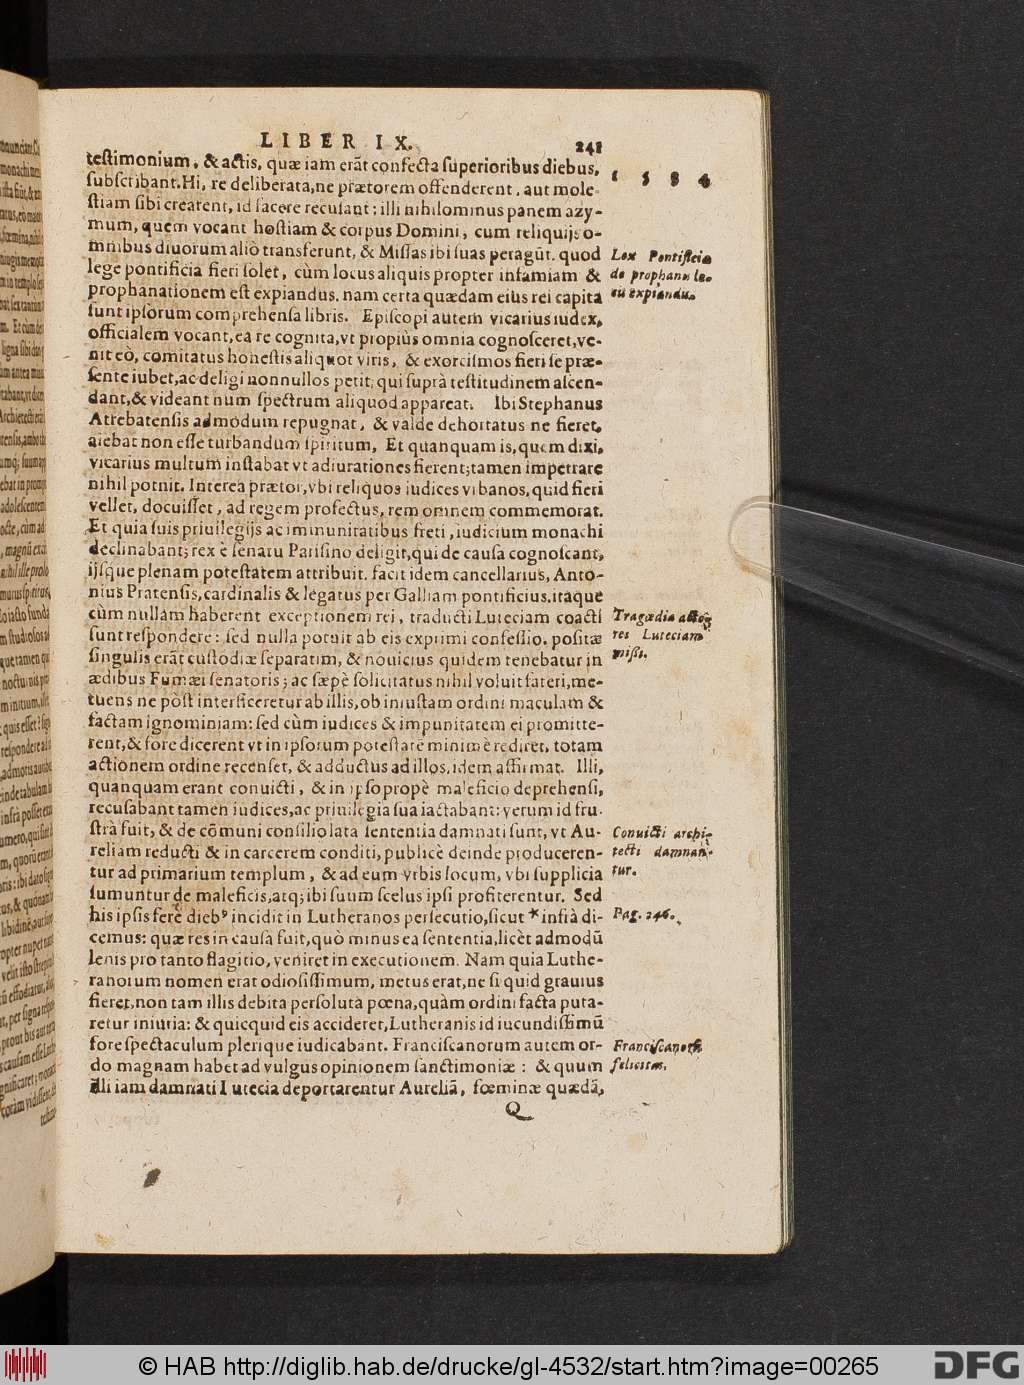 LIBER IX. 241
testimonium, & actis, quæ iam erāt confecta superioribus diebus,
1 5 3 4
subscribant. Hi, re deliberata, ne prætorem offenderent, aut mole-
stiam sibi crearent, id facere recusant: illi nihilominus panem azy-
mum, quem vocant hostiam & corpus Domini, cum reliquijs o-
mnibus diuorum aliò transferunt, & Missas ibi suas peragūt. quod
Lex Pontificia
lege pontificia fieri solet, cùm locus aliquis propter infamiam &
de prophano lo-
prophanationem est expiandus. nam certa quædam eius rei capita
cū expiandu.
sunt ipsorum comprehensa libris. Episcopi autem vicarius iudex,
officialem vocant, ea re cognita, vt propiùs omnia cognosceret, ve-
nit eò, comitatus honestis aliquot viris, & exorcismos fieri se præ-
sente iubet, ac deligi nonnullos petit, qui suprà testitudinem ascen-
dant, & videant num spectrum aliquod appareat. Ibi Stephanus
Atrebatensis admodum repugnat, & valde dehortatus ne fieret,
aiebat non esse turbandum spiritum, Et quanquam is, quem dixi,
vicarius multum instabat vt adiurationes fierent; tamen impetrare
nihil potuit. Interea prætor, vbi reliquos iudices vrbanos, quid fieri
vellet, docuisset, ad regem profectus, rem omnem commemorat.
Et quia suis priuilegijs ac immunitatibus freti, iudicium monachi
declinabant; rex è senatu Parisino deligit, qui de causa cognoscant,
ijsque plenam potestatem attribuit. facit idem cancellarius, Anto-
nius Pratensis, cardinalis & legatus per Galliam pontificius. itaque
cùm nullam haberent exceptionem rei, traducti Luteciam coacti
Tragœdia acto-
sunt respondere: sed nulla potuit ab eis exprimi confessio. positæ
res Luteciam
singulis erāt custodiæ separatim, & nouicius quidem tenebatur in
missi.
ædibus Fumæi senatoris; ac sæpè solicitatus nihil voluit fateri, me-
tuens ne pòst interficeretur ab illis, ob iniustam ordini maculam &
factam ignominiam: sed cùm iudices & impunitatem ei promitte-
rent, & fore dicerent vt in ipsorum potestatē minimè rediret, totam
actionem ordine recenset, & adductus ad illos, idem affirmat. Illi,
quanquam erant conuicti, & in ipso propè maleficio deprehensi,
recusabant tamen iudices, ac priuilegia sua iactabant: verum id fru-
strà fuit, & de cōmuni consilio lata sententia damnati sunt, vt Au-
Conuicti archi-
reliam reducti & in carcerem conditi, publicè deinde produceren-
tecti damnan-
tur ad primarium templum, & ad eum vrbis locum, vbi supplicia
tur.
sumuntur de maleficis, atq; ibi suum scelus ipsi profiterentur. Sed
his ipsis ferè dieb⁹ incidit in Lutheranos persecutio, sicut * infrà di-
Pag. 246.
cemus: quæ res in causa fuit, quò minus ea sententia, licèt admodū
lenis pro tanto flagitio, veniret in executionem. Nam quia Luthe-
ranorum nomen erat odiosissimum, metus erat, ne si quid grauius
fieret, non tam illis debita persoluta pœna, quàm ordini facta puta-
retur iniuria: & quicquid eis accideret, Lutheranis id iucundissimū
fore spectaculum plerique iudicabant. Franciscanorum autem or-
Franciscanorū
do magnam habet ad vulgus opinionem sanctimoniæ: & quum
felicitas.
illi iam damnati Lutecia deportarentur Aureliā, fœminæ quædā,
Q
© HAB http://diglib.hab.de/drucke/gl-4532/start.htm?image=00265
DFG